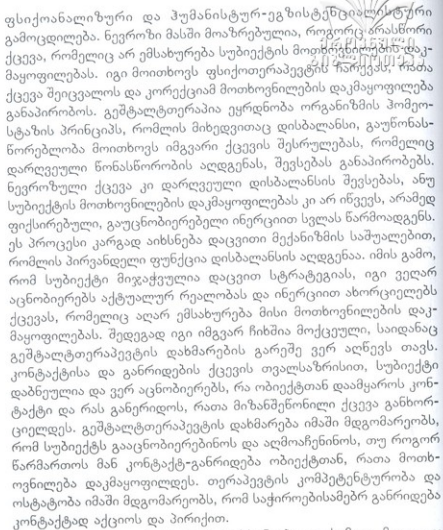 ფსიქოანალიზური და ჰუმანისტურ-ეგზისტენციალისტური
გამოცდილება. ნევროზი მასში მოაზრებულია, როგორც არასწორი
ქცევა, რომელიც არ ემსახურება სუბიექტის მოთხოვნილების დაკ-
მაყოფილებას. იგი მოითხოვს ფსიქოთერაპევტის ჩარევას, რათა
ქცევა შეიცვალოს და კორექციამ მოთხოვნილების დაკმაყოფილება
განაპირობოს. გეშტალტთერაპია ეყრდნობა ორგანიზმის ჰომეო-
სტაზის პრინციპს, რომლის მიხედვითაც დისბალანსი, გაუწონას-
წორებლობა მოითხოვს იმგვარი ქცევის შესრულებას, რომელიც
დარღვეული წონასწორობის აღდგენას, შევსებას განაპირობებს.
ნევროზული ქცევა კი დარღვეული დისბალანსის შევსებას, ანუ
სუბიექტის მოთხოვნილების დაკმაყოფილებას კი არ იწვევს, არამედ
ფიქსირებული, გაუცნობიერებელი ინერციით სვლას წარმოადგენს.
ეს პროცესი კარგად აიხსნება დაცვითი მექანიზმის საშუალებით,
რომლის პირვანდელი ფუნქცია დისბალანსის აღდგენაა. იმის გამო,
რომ სუბიექტი მიჯაჭვულია დაცვით სტრატეგიას, იგი ვეღარ
აცნობიერებს აქტუალურ რეალობას და ინერციით ახორციელებს
ქცევას, რომელიც აღარ ემსახურება მისი მოთხოვნილების დაკ-
მაყოფილებას. შედეგად იგი იმგვარ ჩიხშია მოქცეული, საიდანაც
გეშტალტთერაპევტის დახმარების გარეშე ვერ აღწევს თავს.
კონტაქტისა და განრიდების ქცევის თვალსაზრისით, სუბიექტი
დაბნეულია და ვერ აცნობიერებს, რა ობიექტთან დაამყაროს კონ-
ტაქტი და რას განერიდოს, რათა მიზანშეწონილი ქცევა განხორ-
ციელდეს. გეშტალტთერაპევტის დახმარება იმაში მდგომარეობს,
რომ სუბიექტს გააცნობიერებინოს და აღმოაჩენინოს, თუ როგორ
წარმართოს მან კონტაქტ-განრიდება ობიექტთან, რათა მოთხ-
ოვნილება დაკმაყოფილდეს. თერაპევტის კომპეტენტურობა და
ოსტატობა იმაში მდგომარეობს, რომ საჭიროებისამებრ განრიდება
კონტაქტად აქციოს და პირიქით.